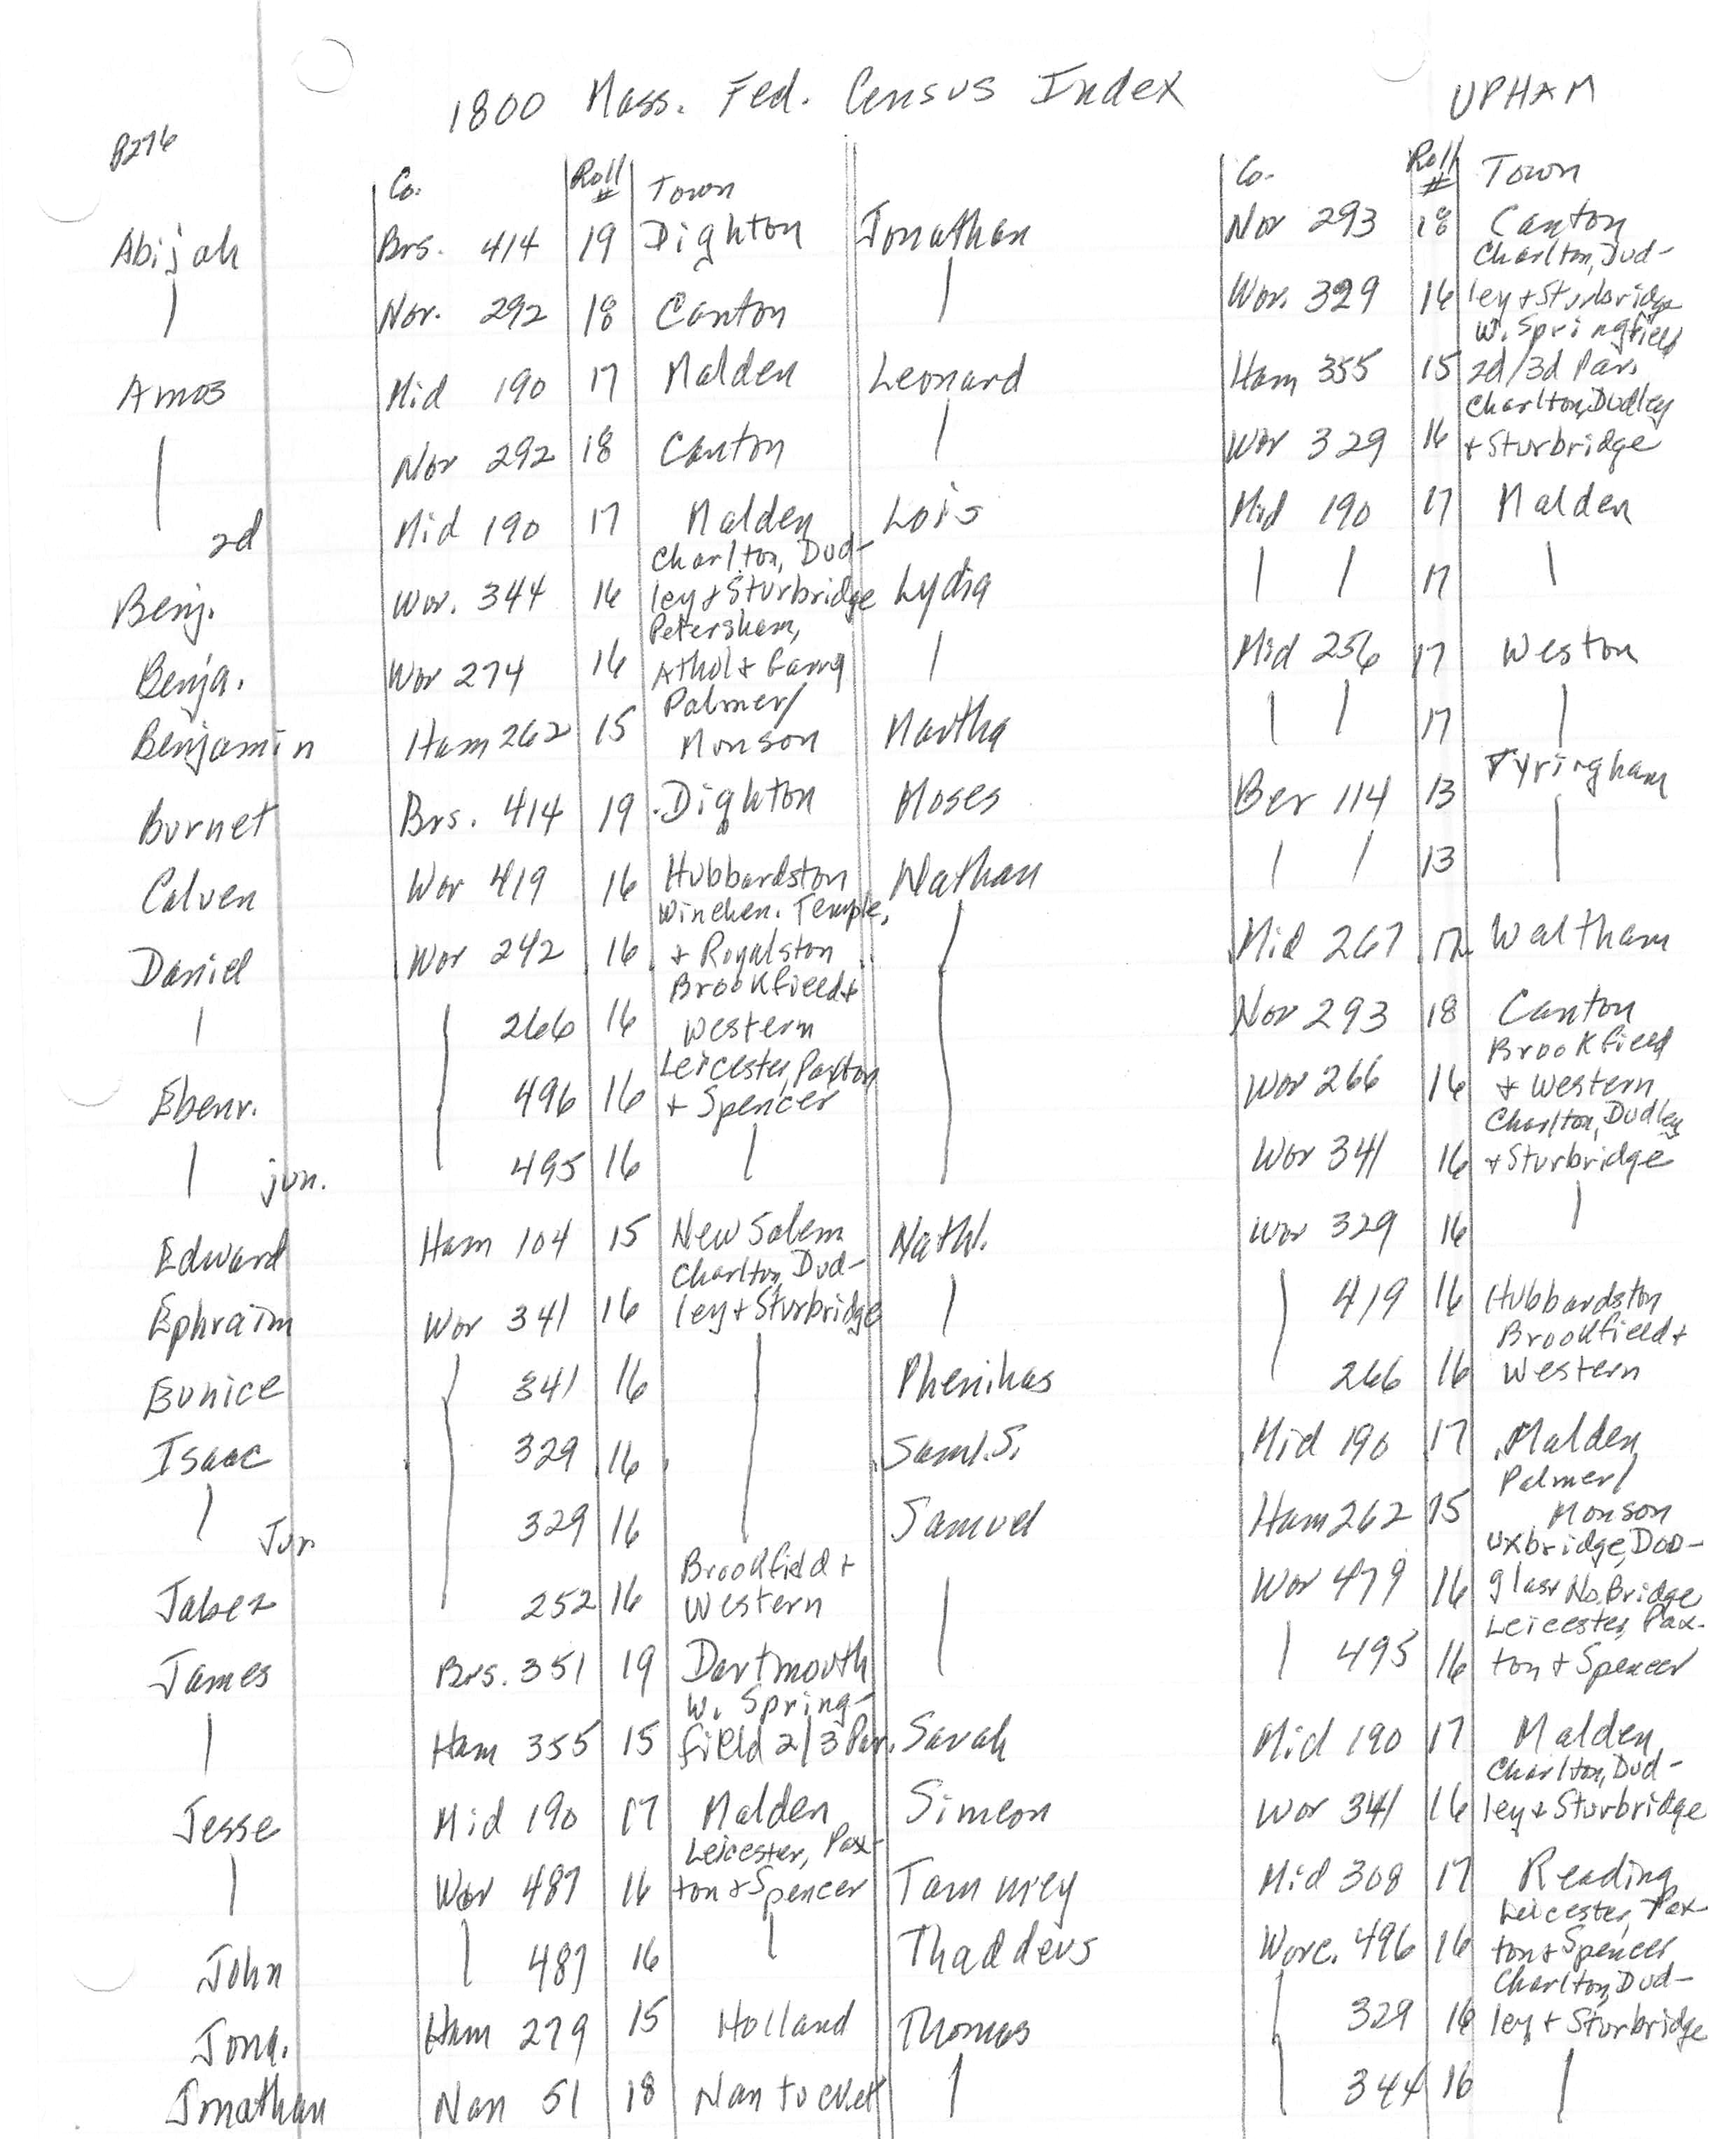 1800 Mass. Fed. Census Index UPHAM
P276
Co. Roll # Town
Abijah Brs. 414 19 Dighton
| Nor. 292 18 Canton
Amos Mid 190 17 Malden
| Nor 292 18 Canton
| 2d Mid 190 17 Malden
Charlton, Dud-
Benj. Wor. 344 16 ley & Sturbridge
Petersham,
Benja. Wor 274 16 Athol &
Palmer/
Benjamin Ham 262 15 Monson
Burnet Brs. 414 19 Dighton
Calven Wor 419 16 Hubbardston
Winchen. Temple,
Daniel Wor 242 16 & Royalston
Brookfield &
| | 266 16 Western
Leicester, Paxton
Ebenr. | 496 16 & Spencer
| jun. | 495 16 |
Edward Ham 104 15 New Salem
Charlton, Dud-
Ephraim Wor 341 16 ley & Sturbridge
Eunice | 341 16 |
Isaac | 329 16 |
| Jur. | 329 16 |
Brookfield &
Jabez | 252 16 Western
James Brs. 351 19 Dartmouth
W. Spring-
| Ham 355 15 field 2/3 Par.
Jesse Mid 190 17 Malden
Leicester, Pax-
| Wor 487 16 ton & Spencer
John | 487 16 |
Jona. Ham 279 15 Holland
Jonathan Nan 51 18 Nantucket
Co. Roll # Town
Jonathan Nor 293 18 Canton
Charlton, Dud-
| Wor. 329 16 ley & Sturbridge
W. Springfield
Leonard Ham 355 15 2d/3d Par.
Charlton, Dudley
| Wor 329 16 & Sturbridge
Lois Mid 190 17 Malden
Lydia | | 17 |
| Mid 256 17 Weston
Martha | | 17 |
Moses Ber 114 13 Tyringham
Nathan | | 13 |
| Mid 267 17 Waltham
| Nor 293 18 Canton
Brookfield
| Wor 266 16 & Western
Charlton, Dudley
| Wor 341 16 & Sturbridge
Nathl. Wor 329 16 |
| | 419 16 Hubbardston
Brookfield &
Phenihas | 266 16 Western
Saml. S. Mid 190 17 Malden
Palmer/
Samuel Ham 262 15 Monson
Uxbridge, Doo-
| Wor 479 16 glass No. Bridge
Leicester, Pax-
| | 495 16 ton & Spencer
Sarah Mid 190 17 Malden
Charlton, Dud-
Simeon Wor 341 16 ley & Sturbridge
Tammey Mid 308 17 Reading
Leicester, Pax-
Thaddeus Worc. 496 16 ton & Spencer
Charlton, Dud-
Thomas | 329 16 ley & Sturbridge
| | 344 16 |